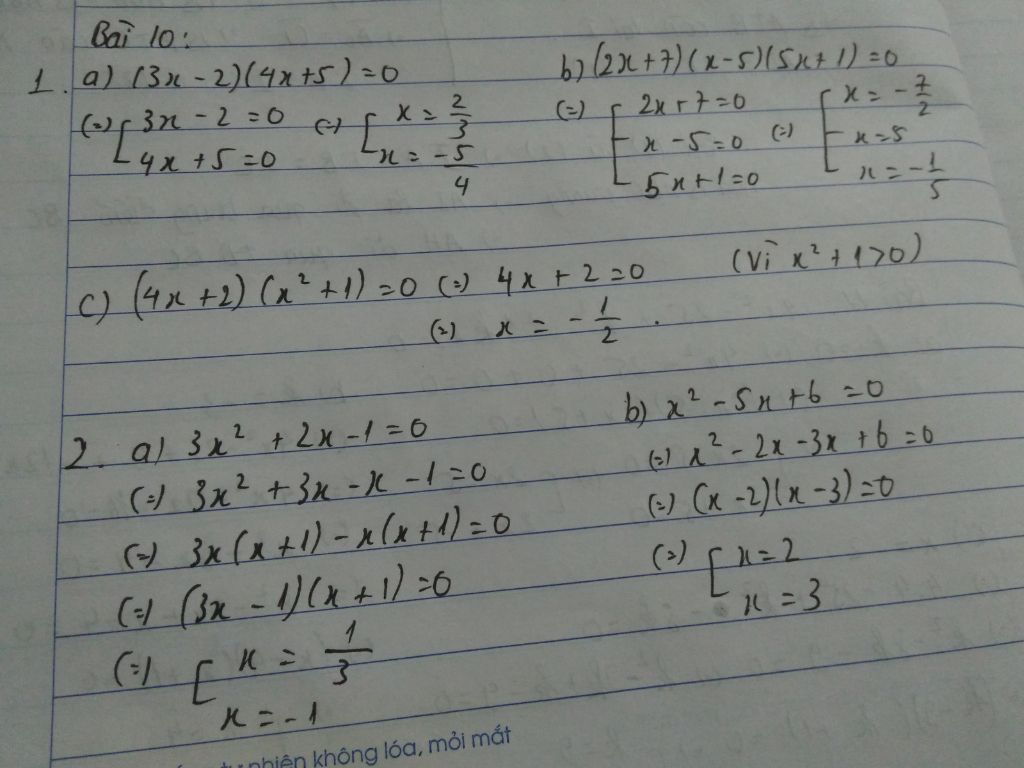 Bài 10:
1. a) (3x - 2)(4x + 5) = 0
(=) [ 3x - 2 = 0 (=) [ x = 2/3
4x + 5 = 0 x = -5/4
b) (2x + 7)(x - 5)(5x + 1) = 0
(=) [ 2x + 7 = 0 (=) [ x = -7/2
x - 5 = 0 x = 5
5x + 1 = 0 x = -1/5
c) (4x + 2)(x² + 1) = 0 (=) 4x + 2 = 0 (Vì x² + 1 > 0)
(=) x = -1/2.
2. a) 3x² + 2x - 1 = 0
(=) 3x² + 3x - x - 1 = 0
(=) 3x(x + 1) - x(x + 1) = 0
(=) (3x - 1)(x + 1) = 0
(=) [ x = 1/3
x = -1
b) x² - 5x + 6 = 0
(=) x² - 2x - 3x + 6 = 0
(=) (x - 2)(x - 3) = 0
(=) [ x = 2
x = 3
tự nhiên không lóa, mỏi mắt